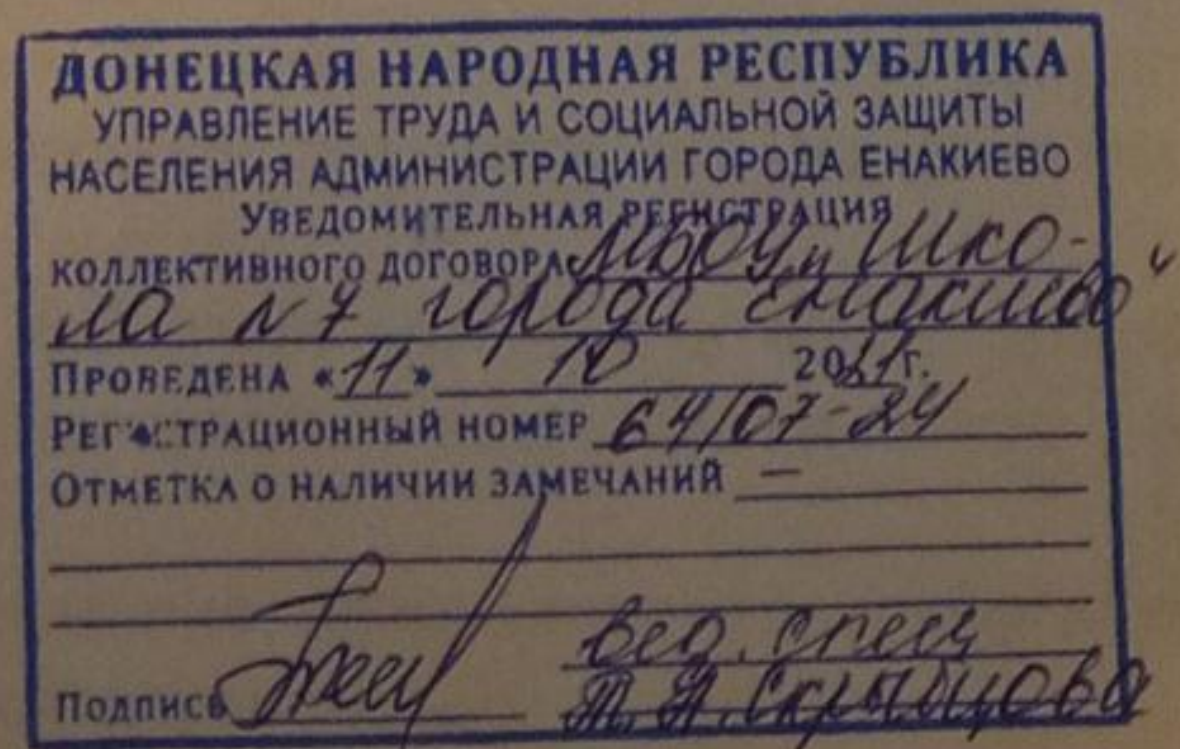 ДОНЕЦКАЯ НАРОДНАЯ РЕСПУБЛИКА
УПРАВЛЕНИЕ ТРУДА И СОЦИАЛЬНОЙ ЗАЩИТЫ
НАСЕЛЕНИЯ АДМИНИСТРАЦИИ ГОРОДА ЕНАКИЕВО
УВЕДОМИТЕЛЬНАЯ РЕГИСТРАЦИЯ
КОЛЛЕКТИВНОГО ДОГОВОРА МБОУ „Шко-
ла №7 города Енакиево"
ПРОВЕДЕНА «11» 10 2024г.
РЕГИСТРАЦИОННЫЙ НОМЕР 64/07-24
ОТМЕТКА О НАЛИЧИИ ЗАМЕЧАНИЙ —
вед. спец
ПОДПИСЬ